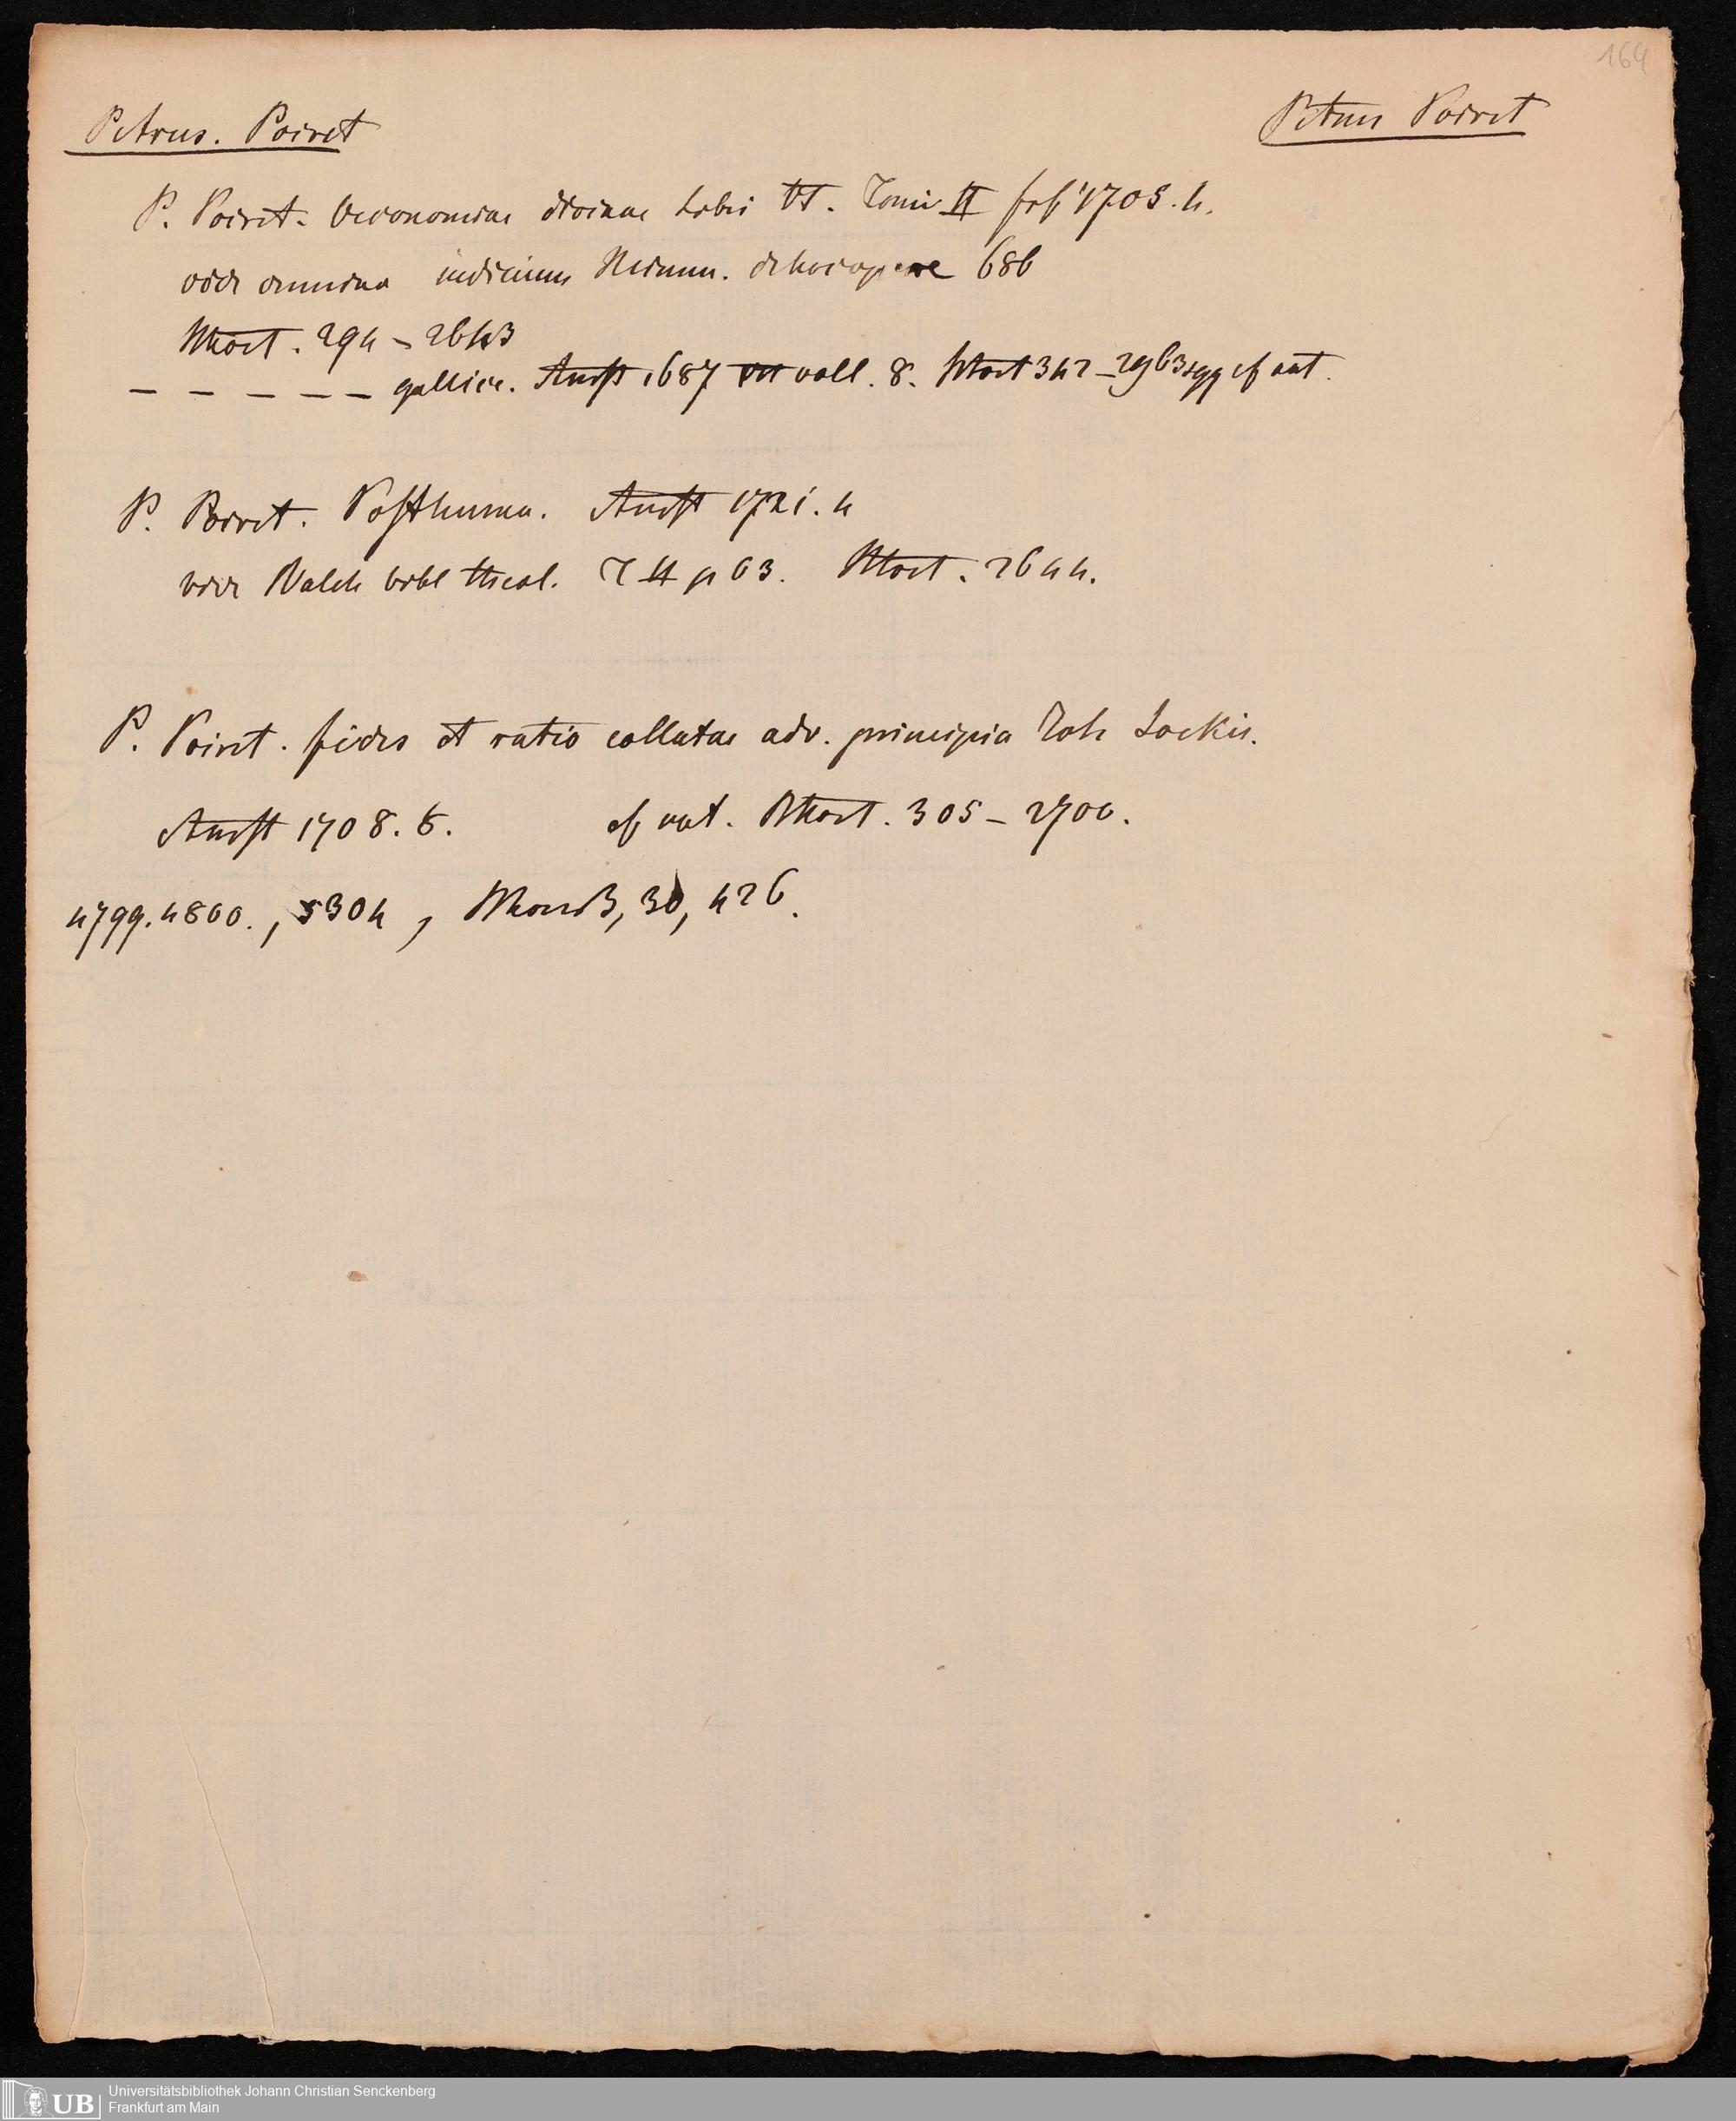 164
Petrus. Poiret
Petrus Poiret
P. Poiret. Oeconomiae divinae Libri VI. Tomi II frf 1705. 4.
vide omnino iudicium de hoc opere 686
294 – 2643
– – – – – gallice. Amst 1687 VII voll. 8. 342 – 2963 sqq cf cat.
P. Poiret. Posthuma. Amst 1721. 4
vide Walch bibl theol. T II p 63. 2644.
P. Poiret. fides et ratio collatae adv. principia Joh Lockii.
Amst 1708. 8. cf cat. 305 – 2700.
4799. 4800., 5304, 30, 426.
UB Universitätsbibliothek Johann Christian Senckenberg
Frankfurt am Main